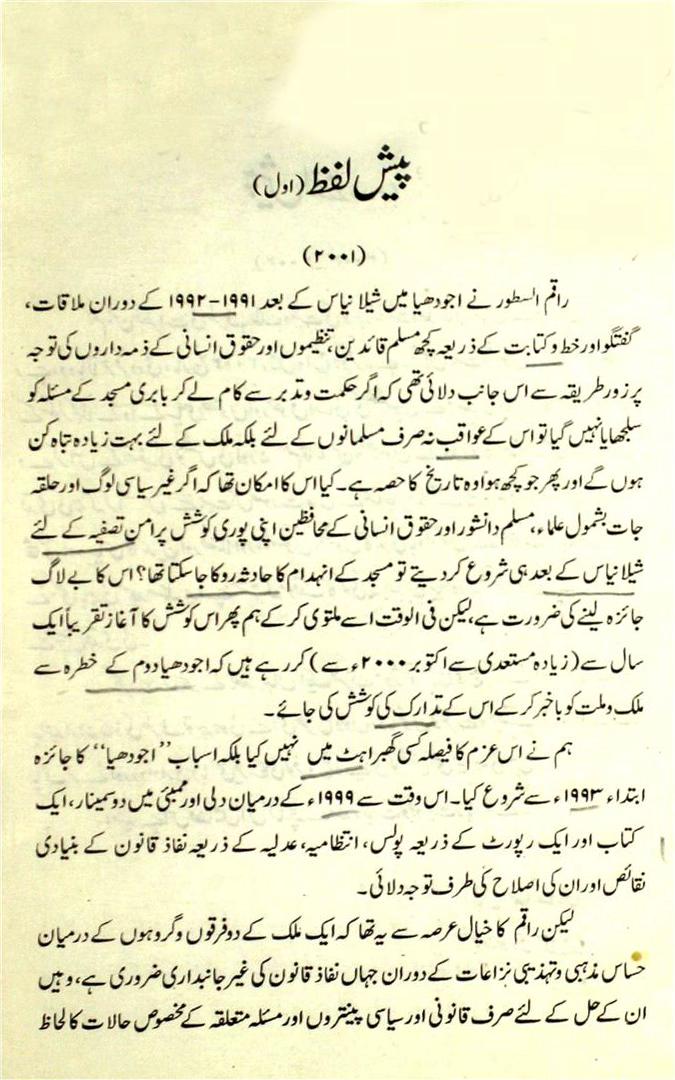 پیش لفظ (اول)
(۲۰۰۱)
راقم السطور نے اجودھیا میں شیلا نیاس کے بعد ۱۹۹۱–۱۹۹۲ کے دوران ملاقات،
گفتگو اور خط و کتابت کے ذریعہ کچھ مسلم قائدین، تنظیموں اور حقوق انسانی کے ذمہ داروں کی توجہ
پر زور طریقہ سے اس جانب دلائی تھی کہ اگر حکمت و تدبر سے کام لے کر بابری مسجد کے مسئلہ کو
سلجھایا نہیں گیا تو اس کے عواقب نہ صرف مسلمانوں کے لئے بلکہ ملک کے لئے بہت زیادہ تباہ کن
ہوں گے اور پھر جو کچھ ہوا وہ تاریخ کا حصہ ہے۔ کیا اس کا امکان تھا کہ اگر غیر سیاسی لوگ اور حلقہ
جات بشمول علماء، مسلم دانشور اور حقوق انسانی کے محافظین اپنی پوری کوشش پر امن تصفیہ کے لئے
شیلا نیاس کے بعد ہی شروع کر دیتے تو مسجد کے انہدام کا حادثہ روکا جا سکتا تھا؟ اس کا بے لاگ
جائزہ لینے کی ضرورت ہے، لیکن فی الوقت اسے ملتوی کر کے ہم پھر اس کوشش کا آغاز تقریباً ایک
سال سے (زیادہ مستعدی سے اکتوبر ۲۰۰۰ء سے) کر رہے ہیں کہ اجودھیا دوم کے خطرہ سے
ملک و ملت کو باخبر کر کے اس کے تدارک کی کوشش کی جائے۔
ہم نے اس عزم کا فیصلہ کسی گھبراہٹ میں نہیں کیا بلکہ اسباب ''اجودھیا'' کا جائزہ
ابتداء ۱۹۹۳ء سے شروع کیا۔ اس وقت سے ۱۹۹۹ء کے درمیان دلی اور ممبئی میں دو سمینار، ایک
کتاب اور ایک رپورٹ کے ذریعہ پولس، انتظامیہ، عدلیہ کے ذریعہ نفاذ قانون کے بنیادی
نقائص اور ان کی اصلاح کی طرف توجہ دلائی۔
لیکن راقم کا خیال عرصہ سے یہ تھا کہ ایک ملک کے دو فرقوں و گروہوں کے درمیان
حساس مذہبی و تہذیبی نزاعات کے دوران جہاں نفاذ قانون کی غیر جانبداری ضروری ہے، وہیں
ان کے حل کے لئے صرف قانونی اور سیاسی پینتروں اور مسئلہ متعلقہ کے مخصوص حالات کا لحاظ